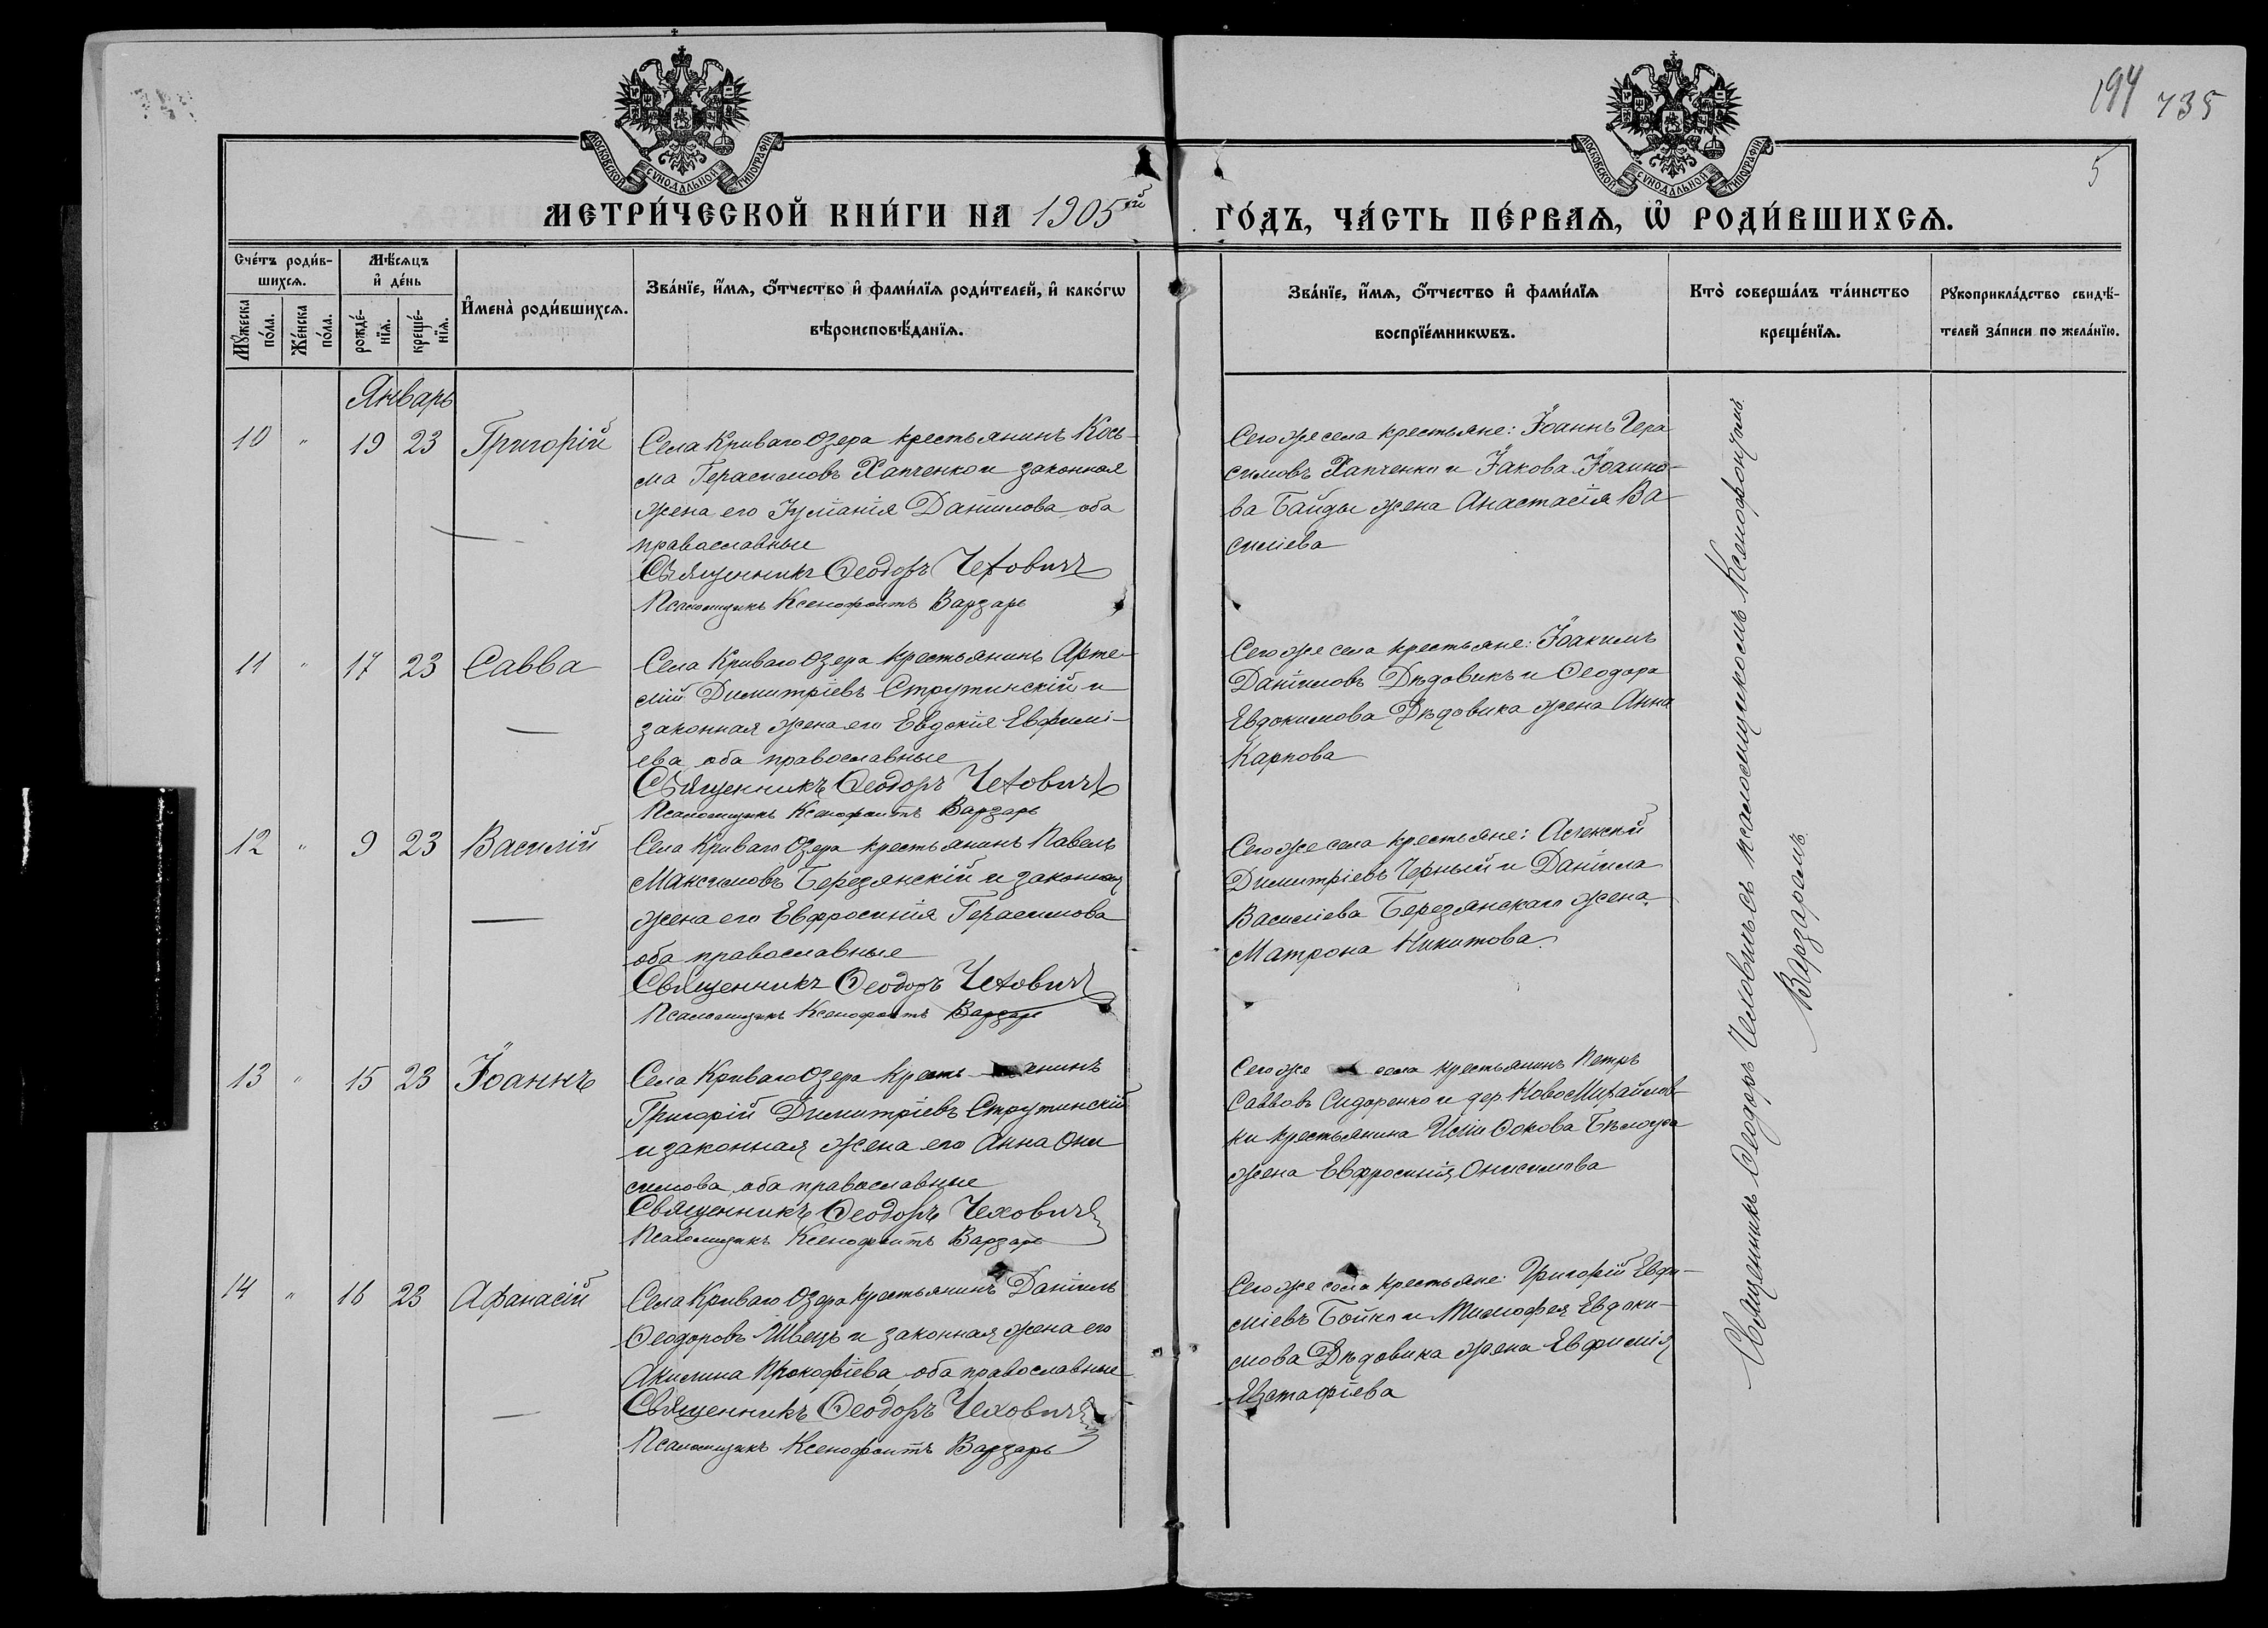 194 735
5
МОСКОВСКОЙ СѴНОДАЛЬНОЙ ТИПОГРАФІИ
МОСКОВСКОЙ СѴНОДАЛЬНОЙ ТИПОГРАФІИ
МЕТРИ́ЧЕСКОЙ КНИ́ГИ НА 1905ый ГО́ДЪ, ЧА́СТЬ ПЕ́РВАѦ, Ѡ҆ РОДИ́ВШИХСѦ.
Сче́тъ роди́в-
шихсѧ.
Мꙋ́жеска
по́ла.
Же́нска
по́ла.
Мѣ́сѧцъ
и҆ де́нь
рожде́-
нїѧ.
креще́-
нїѧ.
И҆мена̀ роди́вшихсѧ.
Зва́нїе, и҆́мѧ, ѻ҆́тчество и҆ фами́лїѧ роди́телей, и҆ како́гѡ
вѣроисповѣ́данїѧ.
Зва́нїе, и҆́мѧ, ѻ҆́тчество и҆ фами́лїѧ
воспрїе́мникѡвъ.
Кто̀ соверша́лъ та́инство
креще́нїѧ.
Рꙋкоприкла́дство свидѣ́-
телей за́писи по жела́нїю.
Январь
10 " 19 23 Григорій
Села Криваго Озера крестьянинъ Кось-
ма Герасимовъ Хапченко и законная
жена его Іуліанія Даніилова оба
православные
Священникъ Ѳеодоръ Чехович
Псаломщикъ Ксенофонтъ Варзарь
Сего же села крестьяне: Іоаннъ Гера
симовъ Хапченко и Іакова Іоакимо-
ва Байды жена Анастасія Ва
силіева
11 " 17 23 Савва
Села Криваго Озера крестьянинъ Арте-
мій Димитріевъ Струтинскій и
законная жена его Евдокія Евфимі-
ева оба православные
Священникъ Ѳеодоръ Чехович
Псаломщикъ Ксенофонтъ Варзарь
Сего же села крестьяне: Іоакимъ
Даніиловъ Дѣдовикъ и Ѳеодора
Евдокимова Дѣдовика жена Анна
Карпова
12 " 9 23 Василій
Села Криваго Озера крестьянинъ Павелъ
Максимовъ Березянскій и законная
жена его Евфросинія Герасимова
оба православные
Священникъ Ѳеодоръ Чехович
Псаломщикъ Ксенофонтъ Варзарь
Сего же села крестьяне: Алексій
Димитріевъ Черный и Даніила
Василіева Березянскаго жена
Матрона Никитова
13 " 15 23 Іоаннъ
Села Криваго Озера кресть янинъ
Григорій Димитріевъ Струтинскій
и законная жена его Анна Они
симова оба православные
Священникъ Ѳеодоръ Чехович
Псаломщикъ Ксенофонтъ Варзарь
Сего же села крестьянинъ Петръ
Саввовъ Сидоренко и дер. НовоМихайлов-
ки крестьянина Иліи Ѳокова
жена Евфросинія Онисимова
14 " 16 23 Афанасій
Села Криваго Озера крестьянинъ Даніилъ
Ѳеодоровъ Швецъ и законная жена его
Акилина Прокофіева, оба православные
Священникъ Ѳеодоръ Чехович
Псаломщикъ Ксенофонтъ Варзарь
Сего же села крестьяне: Григорій Евфи-
міевъ Бойко и Тимофея Евдоки-
мова Дѣдовика жена Евфимія
Евстафіева
Священникъ Ѳеодоръ Чеховичъ съ псаломщикомъ Ксенофонтомъ
Варзаремъ